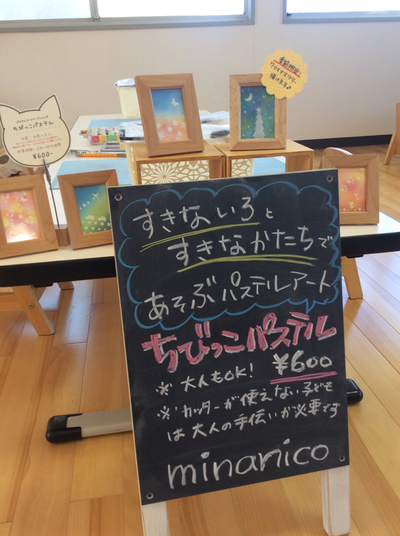 ちびっこパステル
¥600-
すきないろと
すきなかたちで
あそぶパステルアート
ちびっこパステル
※ 大人もOK! ¥600
※ カッターが使えない子ども
は大人の手伝いが必要です
minanico